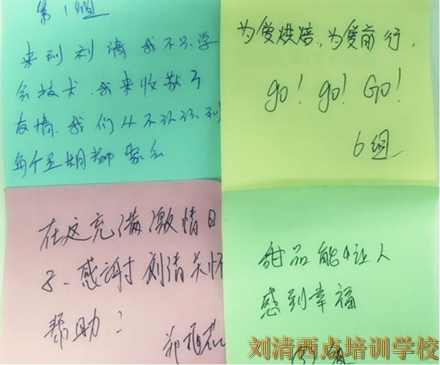 第1组
来到刘清我不只学
会技术,我来收获了
友情.我们从不认识到
每个星期都聚会
为爱烘焙、为爱前行,
go! go! Go!
6组
在这充满激情日
子、感谢刘清关怀
帮助!
甜品能让人
感到幸福
刘清西点培训学校